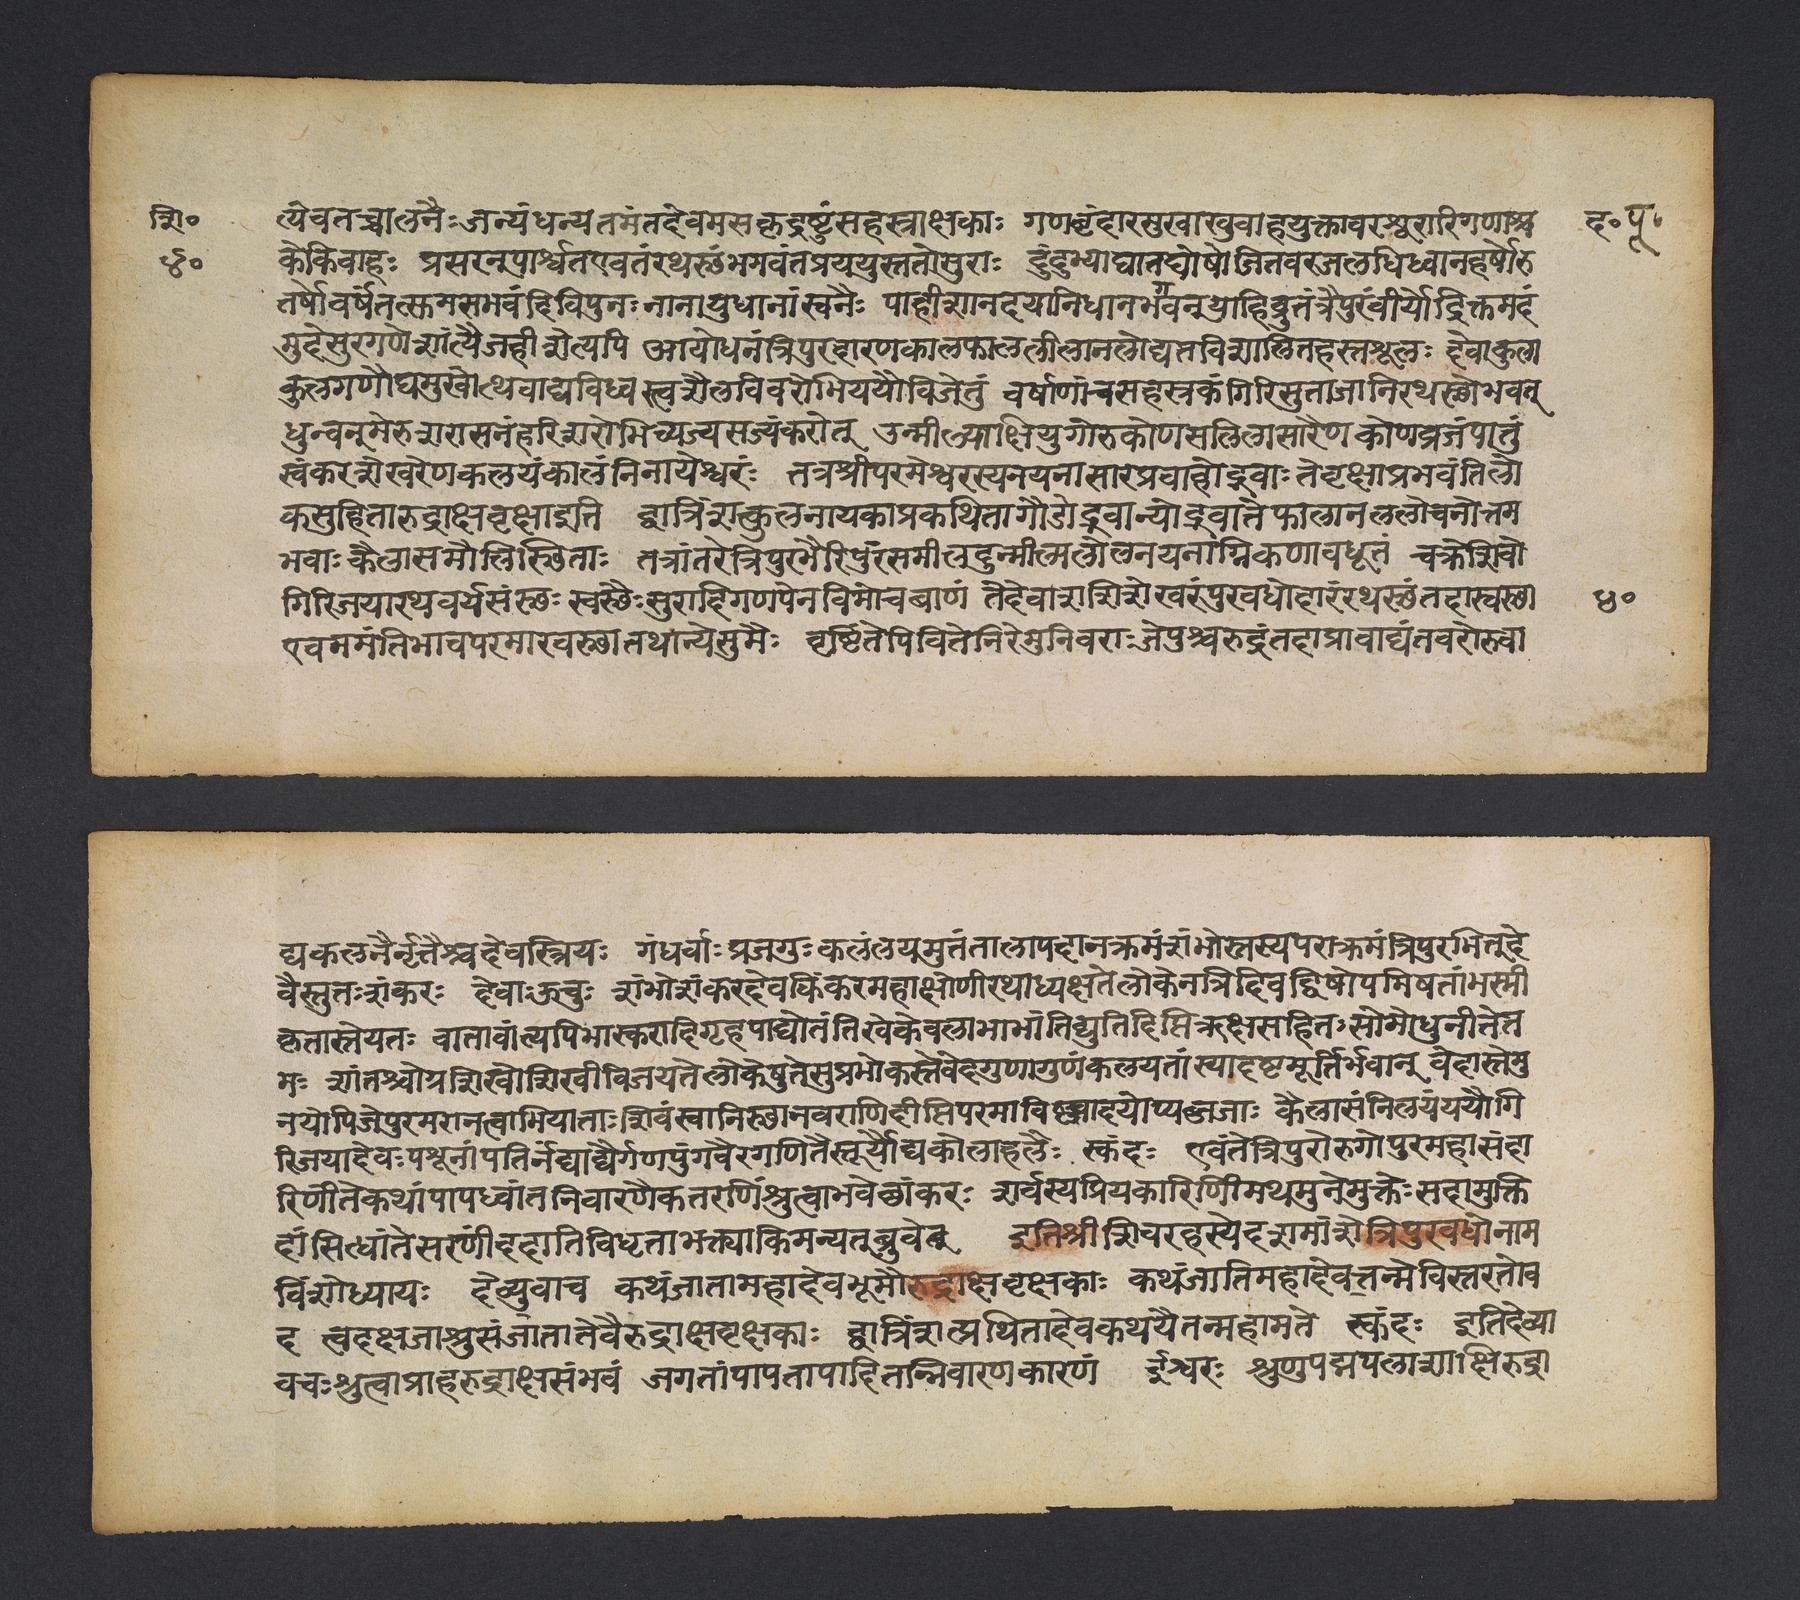 शि॰ त्येवतच्चालनैः जन्यंधन्यतमंतदेवमसकृद्द्रष्टुंसहस्त्राक्षकाः गणवृंदारमुखाखुवाहयुक्तावरश्चरारिगणाश्च द॰ पू॰
४॰ केकिवाहः प्रसरनुपार्श्वतएवतंरथस्छंभगवंतप्रययुस्ततोसुराः दुंदुभ्याघातघोषोजितवरजलधिध्वानहर्षोरु
तर्षोवर्षंतत्क्तमसभवंदिविपुनः नानायुधानांस्वनैः पाहीशानदयानिधानभगवन्पाहिद्रुतंत्रैपुरंवीर्योद्रिक्तमदं
मुदेसुरगणेशांत्यैजहीशेत्यपि आयोधनंत्रिपुरदारणकालफाललीलानलोद्यतविशालितहस्तशूलः देवाकुला
कुलगणौघमुखोत्थवाद्यविध्वस्वशैलविवरोभिययौविजेतुं वर्षाणांचसहस्त्रकंगिरिसुताजानिरथस्छोभवन्
धुन्वनुमेरुशरासनंहरिशरोमिच्यज्यसज्यंकरोत् उन्मील्याक्षियुगोरुकोणसलिलासारैणकोणव्रजंपातुं
स्वंकरशेखरेणकलयंकालंनिनायेश्वरंः तत्रश्रीपरमेश्वरस्यनयनासारप्रवाहोद्भवाः तेवृक्षाप्रभवंतिलो
कसुहितारुद्राक्षवृक्षाइति द्वात्रिंशत्कुलनायकाप्रकथितागौडोद्भवान्योद्भवातेफालानललोचनोत्तम
भवाः कैलासमौलिस्छिताः तत्रांतरेत्रिपुरभैरिपुंरसमीलदुन्मीलल्लोलनयनाग्निकणावधूतं चक्रेशिवो
गिरिजयारथवर्यसंस्छः स्वस्छैः सुरादिगणपेनविमोचबाणं तैदेवाशशिशेखरंपुरवधोदारंरथस्छंतदास्वस्छा ४॰
एवममंतिभावपरमारवस्छातथान्येसुमैः वृष्टिंतेपिवितेनिरेमुनिवराः जेपुश्चरुद्रंतदाप्रावाद्यंतवरोरुवा
द्यकलनैर्नृत्तैश्चदेवस्त्रियः गंधर्वाः प्रजगुः कलंलयमुतंतालापदानक्रमंशंभोस्तस्यपराक्रमंत्रिपुरभित्दे
वैस्तुतः शंकरः देवाः ऊचुः शंभोशंकरदेवकिंकरमहाक्षोणीरथाध्यक्षतेलोकेनत्रिदिवद्विषोपमिषतांभस्मी
कृतास्तेयतः वातावांत्यपिभास्करादिगृहपाद्योतंतिखेकेवलाभाभांतिद्युतिदिप्तिऋक्षसहितः सोमोधुनीतेत
मः शांतश्चोग्रशिखोशिखीविजयतेलोकेषुतेसुप्रभोकस्तेवेदगुणागुणंकलयतांस्यादष्टमूर्तिर्भवान् वेदास्तेमु
नयोपिजेपुरमरानत्वाभियाताः शिवंस्वानिस्छानवराणिदीप्तिपरमाविष्ण्वादयोप्यब्जजाः कैलासंनिलयंययौगि
रिजयादेवः पशूनांपतिर्नंद्याद्यैर्गणपुंगवैरगणितैस्तूर्यौद्यकोलाहलैः स्कंदः एवंतेत्रिपुरोरुगोपुरमहासंहा
रिणीतेकथांपापध्वांतनिवारणैकतरणिंश्रुत्वाभवेछांकरः शर्वस्यप्रियकारिणीमथमुनेमुक्तेः सदामुक्ति
दांसिध्यांतेसरणींददातिविधृताभक्त्याकिमन्यत्ब्रुवेत् इतिश्रीशिवरहस्येदशमांशेत्रिपुरवधोनाम
विंशोध्यायः देव्युवाच कथंजातामहादेवभूमौरुद्राक्षवृक्षकाः कथंजातिमहादेवतन्मेविस्तरतोव
द त्वदक्षजाश्रुसंजातातेवैरुद्राक्षवृक्षकाः द्वात्रिंशत्प्रथितादेवकथयैतन्महामते स्कंदः इतिदेव्या
वचः श्रुत्वाप्राहरुद्राक्षसंभवं जगतांपापतापादितन्निवारणकारणं ईश्वरः श्रुणुपद्मपलाशाक्षिरुद्रा